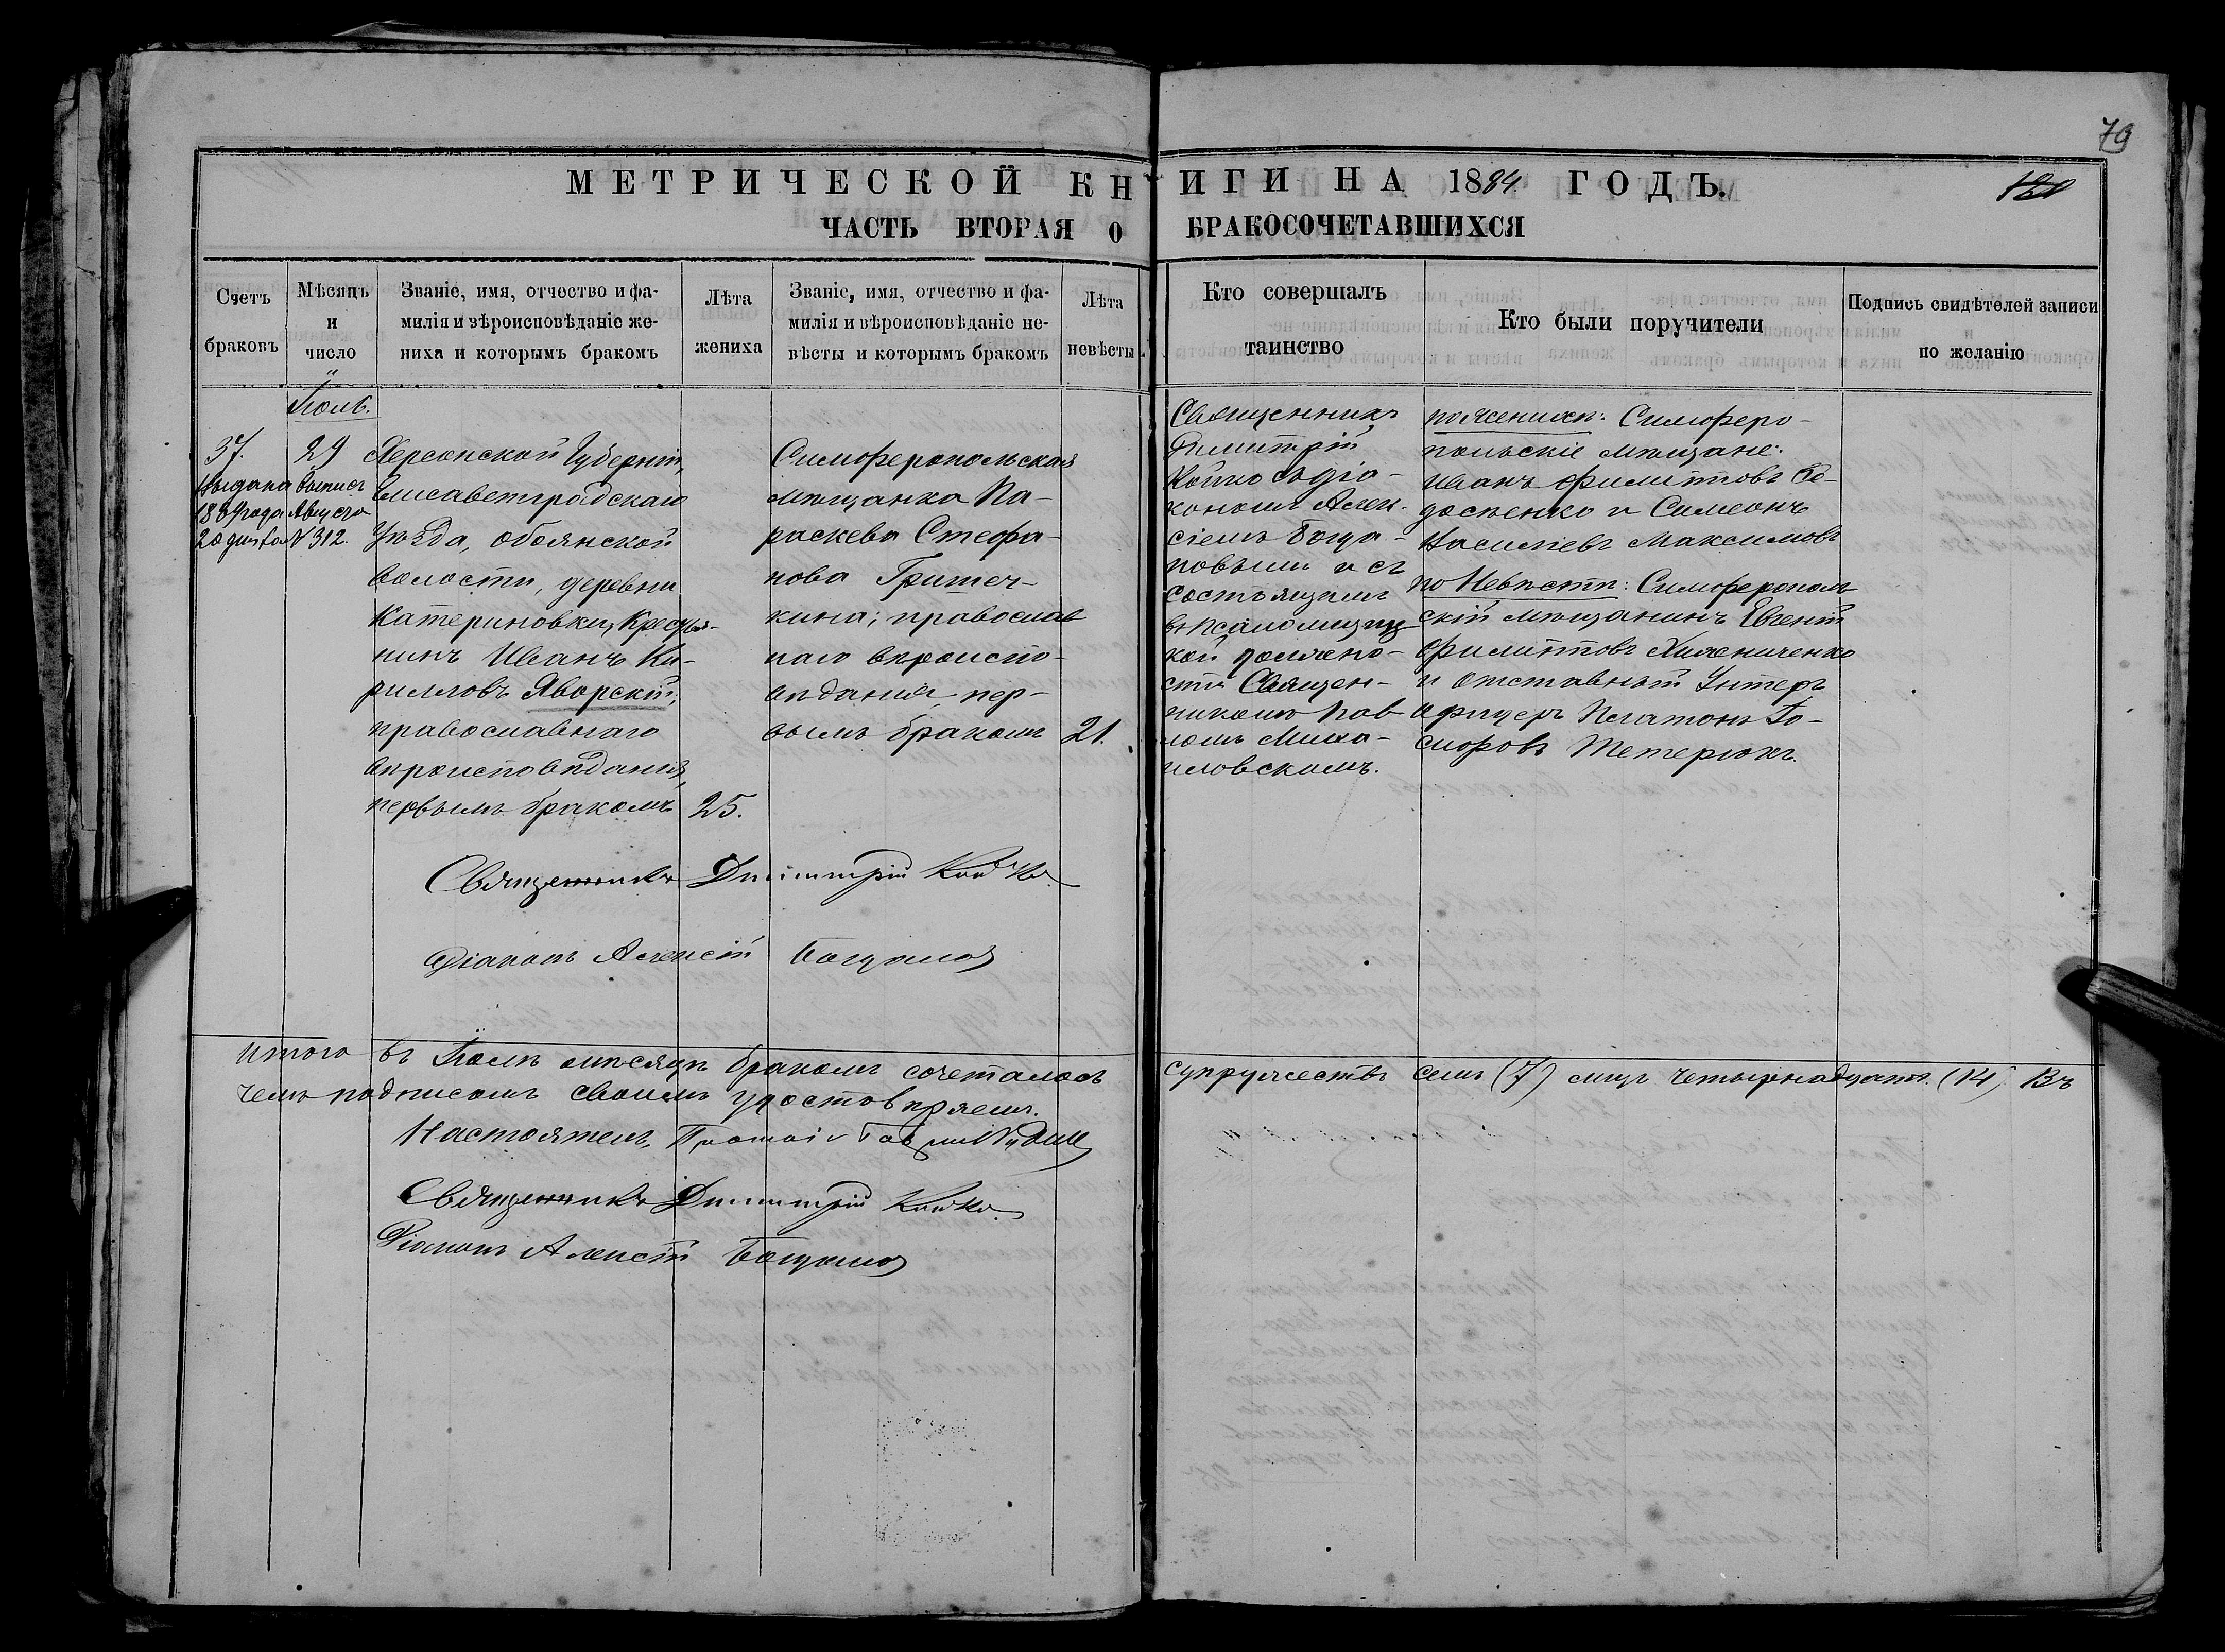 79
МЕТРИЧЕСКОЙ КНИГИ НА 1884 ГОДЪ.
ЧАСТЬ ВТОРАЯ О БРАКОСОЧЕТАВШИХСЯ
Счетъ браковъ
Мѣсяцъ и число
Званіе, имя, отчество и фа-
милія и вѣроисповѣданіе же-
ниха и которымъ бракомъ
Лѣта жениха
Званіе, имя, отчество и фа-
милія и вѣроисповѣданіе не-
вѣсты и которымъ бракомъ
Лѣта невѣсты
Кто совершалъ таинство
Кто были поручители
Подпись свидѣтелей записи
по желанію
Іюль.
37.
29
Выдана выпись
Августа
20 дня за № 312.
Херсонской Губерніи,
Елисаветградскаго
Уѣзда, Обоянской
волости, деревни
Катериновки, Крестья-
нинъ Иванъ Ки-
рилловъ Яворскій,
православнаго
вѣроисповѣданія,
первымъ бракомъ
25.
Симферопольская
мѣщанка Па-
раскева Стефа-
нова Гритеч-
кина; православ
наго вѣроиспо-
вѣданія, пер-
вымъ бракомъ
21.
Священникъ
Димитрій
Койко съ діа-
кономъ Алек-
сіемъ Бога-
новымъ и съ
состоящимъ
въ псаломщиц
кой должно-
сти Священ-
никомъ Пав-
ломъ Миха-
иловскомъ.
по женихѣ: Симферо-
польскіе мѣщане:
Иванъ Филипповъ Ѳе-
досенко и Симеонъ
Васильевъ Максимовъ
по Невѣстѣ: Симферополь
скій мѣщанинъ Евгеній
Филипповъ Хижниченко
и отставной Унтеръ
офицеръ Платонъ
Тетерюкъ.
Священникъ Димитрій Койко
Діаконъ Алексій
Итого въ Іюлѣ мѣсяцѣ бракомъ сочеталось супружествъ семь (7) лицъ четырнадцать (14) Въ
чемъ подписомъ своимъ удостовѣряемъ.
Настоятель,
Священникъ Димитрій Койко
Діаконъ Алексій